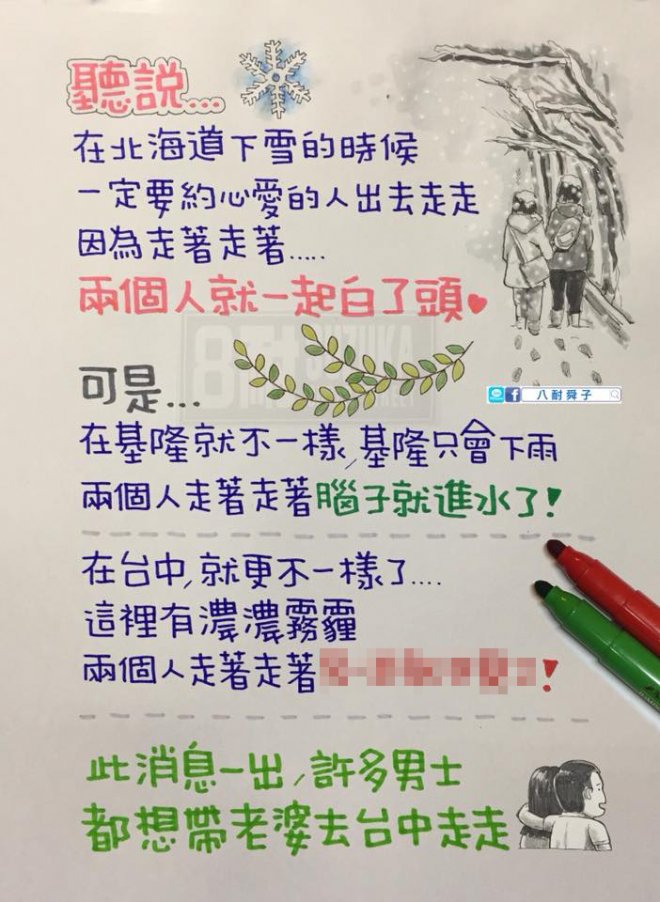 聽說...
在北海道下雪的時候
一定要約心愛的人出去走走
因為走著走著.....
兩個人就一起白了頭
八耐舜子
可是...
在基隆就不一樣,基隆只會下雨
兩個人走著走著腦子就進水了!
在台中,就更不一樣了....
這裡有濃濃霧霾
兩個人走著走著
!
此消息一出,許多男士
都想帶老婆去台中走走